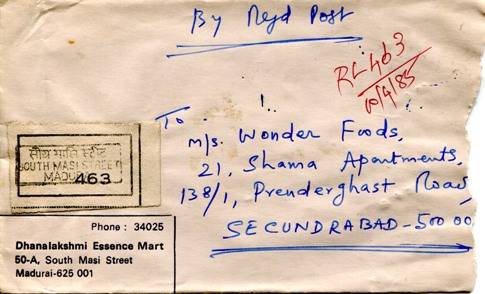 By Regd Post
RL 463
10/4/85
To
M/s. Wonder Foods,
21, Shama Apartments,
138/1, Prenderghast Road
SECUNDRABAD-50000
SOUTH MASI STREET
MADU
463
Phone : 34025
Dhanalakshmi Essence Mart
50-A, South Masi Street
Madurai-625 001